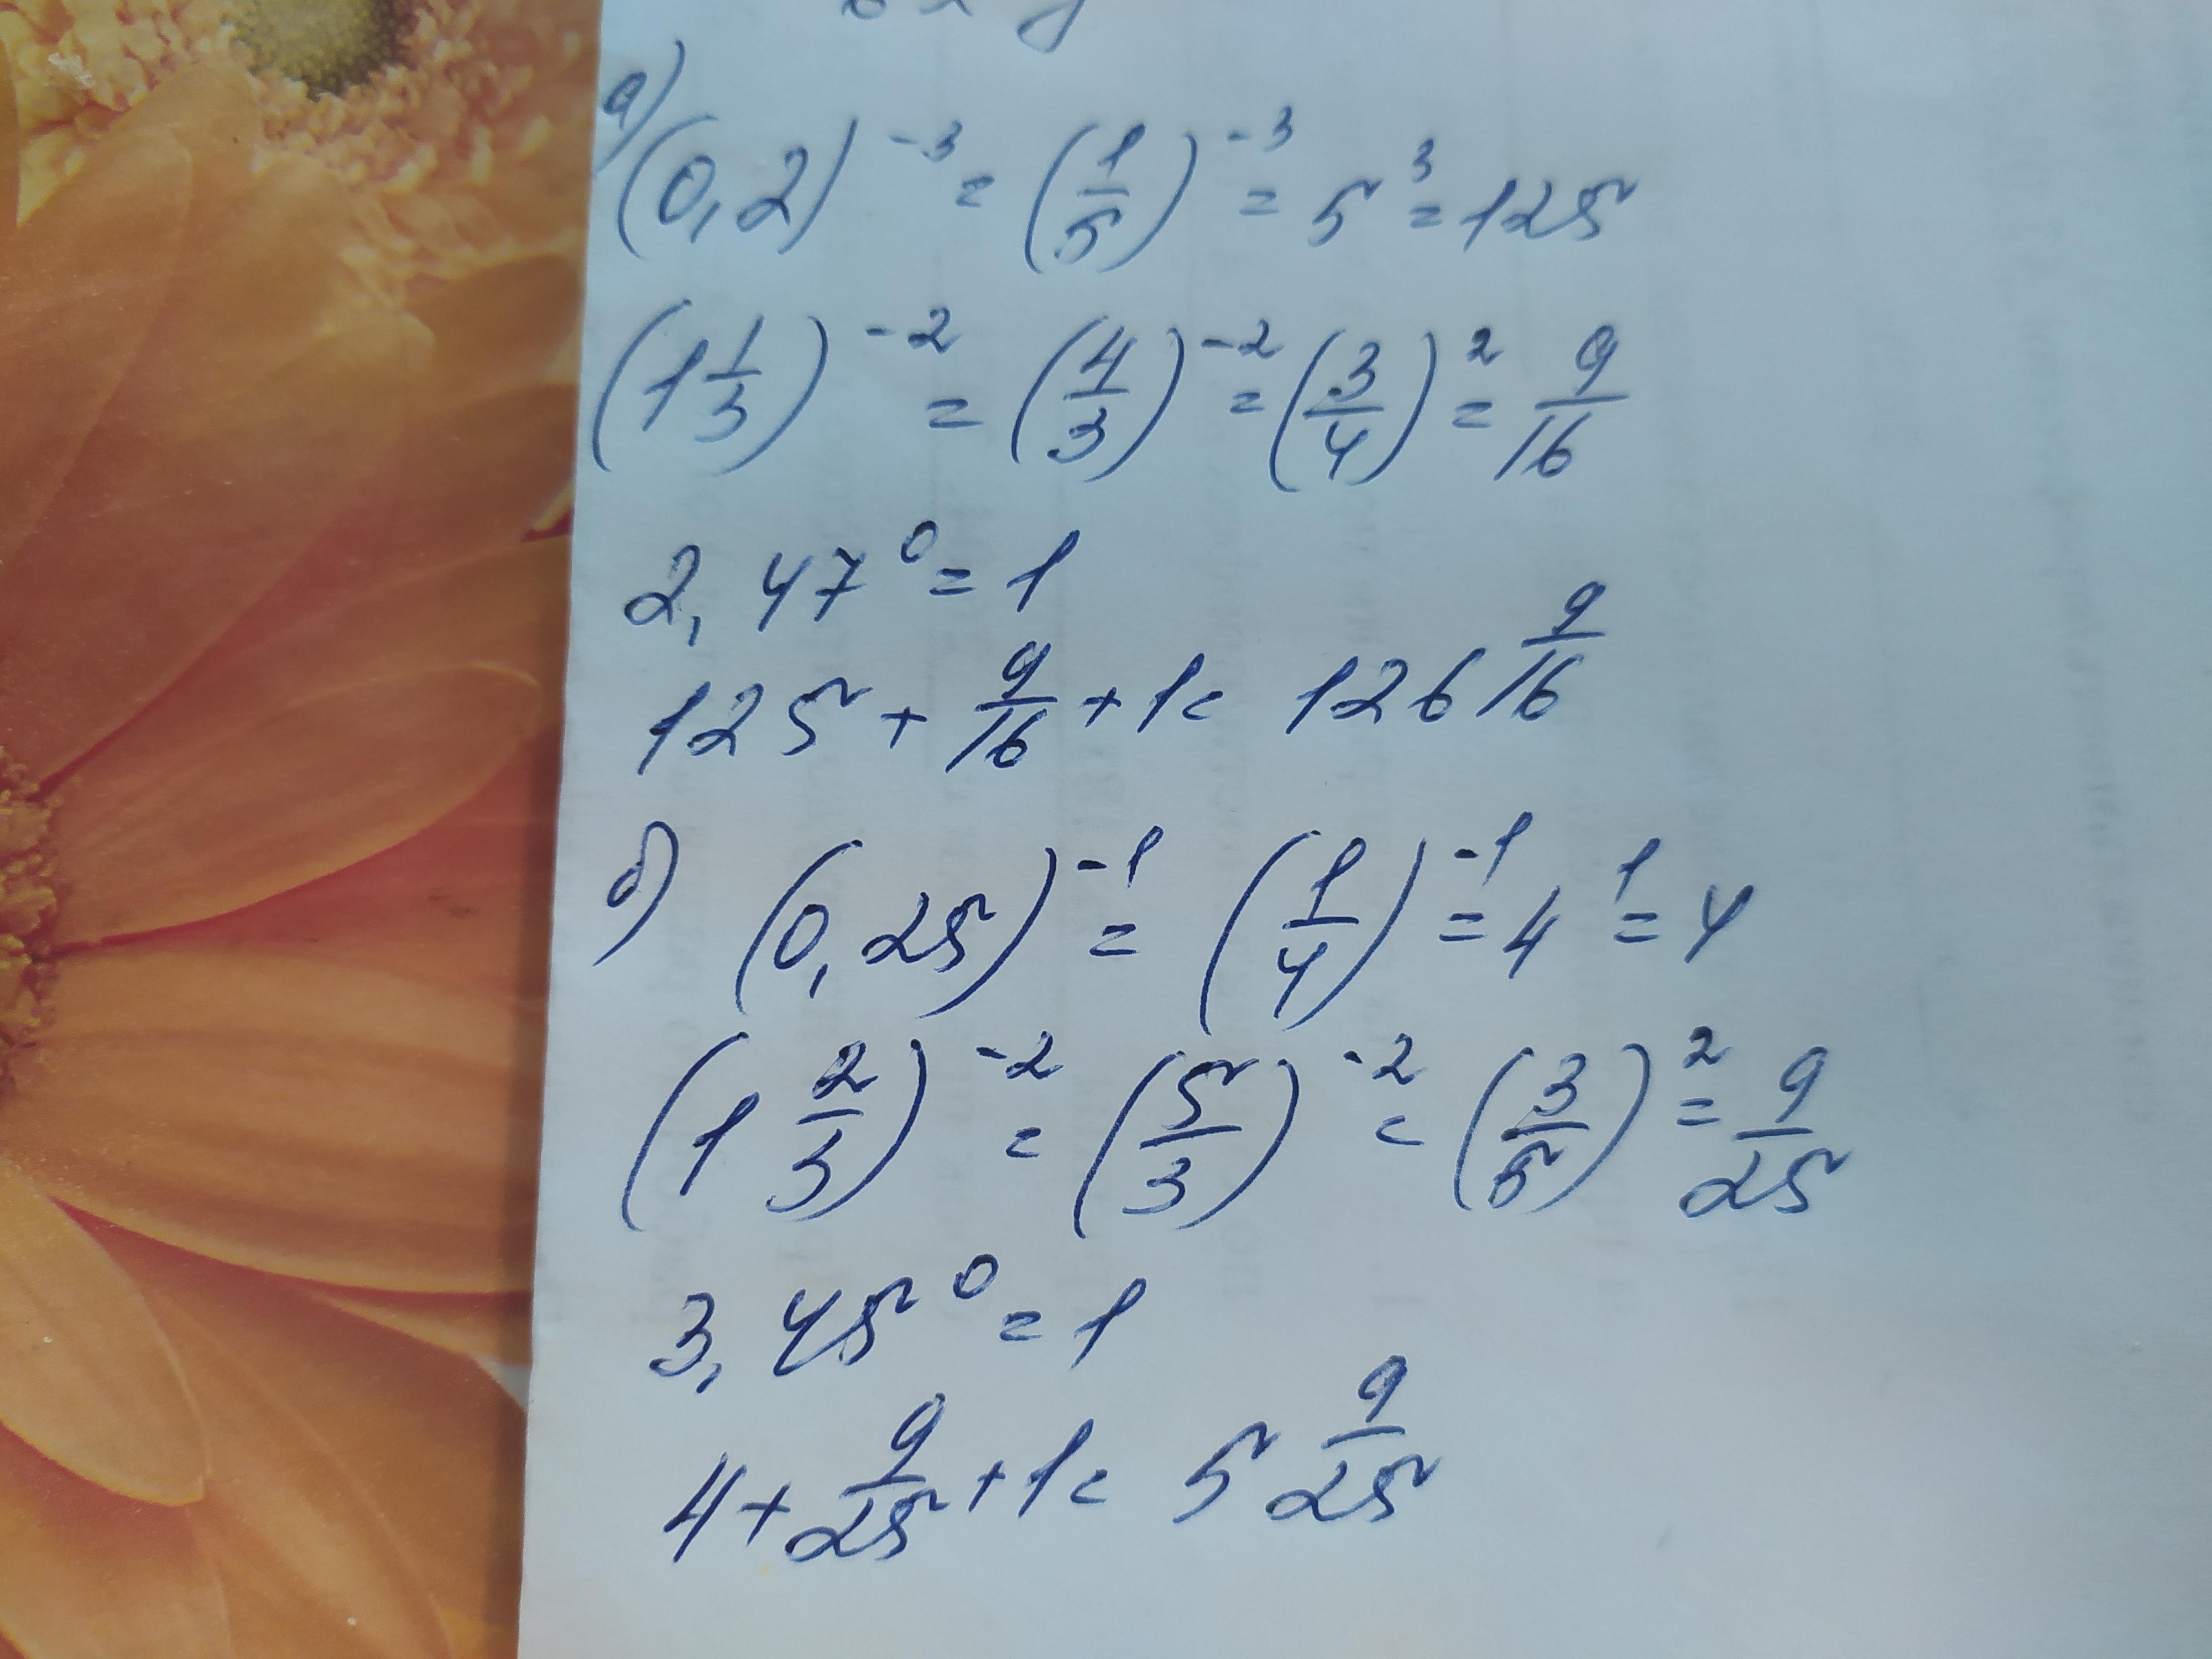 а) (0,2)⁻³ = (1/5)⁻³ = 5³ = 125
(1 1/3)⁻² = (4/3)⁻² = (3/4)² = 9/16
2,47⁰ = 1
125 + 9/16 + 1 = 126 9/16
б) (0,25)⁻¹ = (1/4)⁻¹ = 4¹ = 4
(1 2/3)⁻² = (5/3)⁻² = (3/5)² = 9/25
3,45⁰ = 1
4 + 9/25 + 1 = 5 9/25